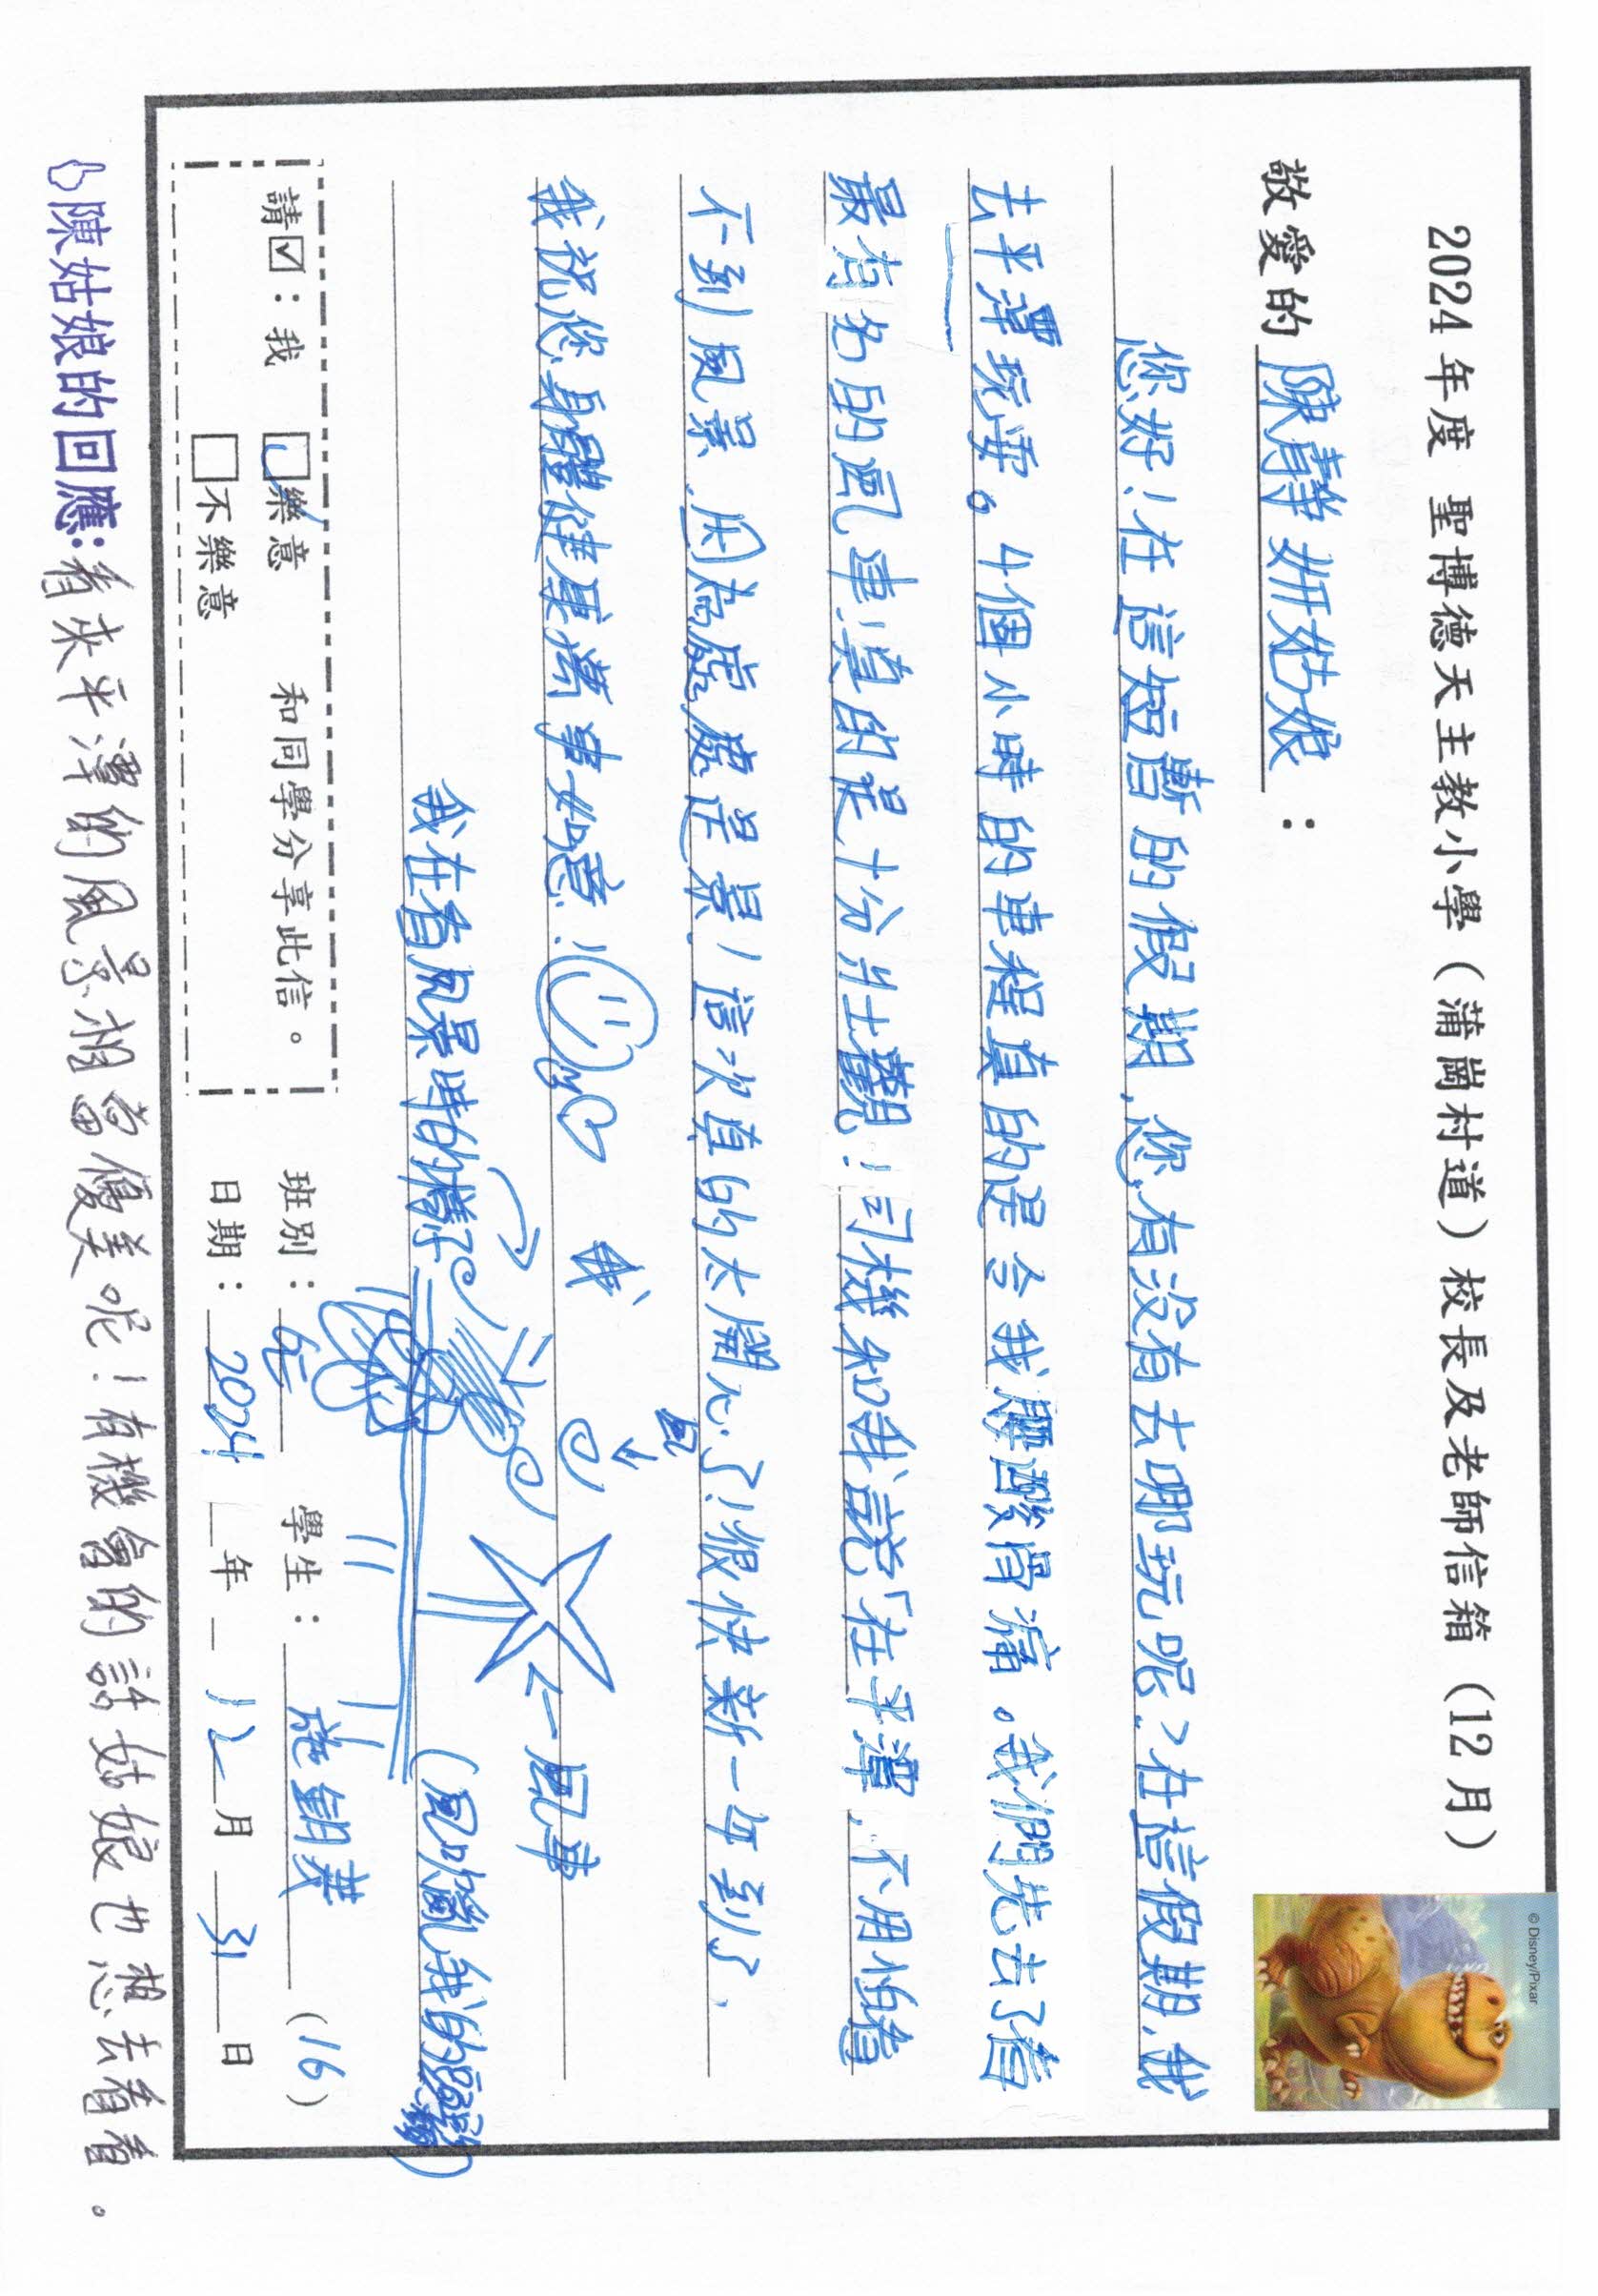 2024 年度 聖博德天主教小學（蒲崗村道）校長及老師信箱（12 月）
© Disney/Pixar
敬愛的 陳靜妍姑娘 ：
您好！在這短暫的假期，您有沒有去哪玩呢？在這假期，我
去平潭玩耍。4個小時的車程真的是令我腰酸骨痛。我們先去了看
最有名的風車！真的是十分壯觀！司機和我說「在平潭，不用怕看
不到風景，因為處處是景！這次真的太開心了！很快新一年到了，
我祝您身體健康萬事如意！
我
風
←風車
我在看風景時的樣子
(風吹亂我的頭髮)
請☑：我 □樂意 和同學分享此信。
□不樂意
班別： 學生： (16)
日期： 2024 年 12 月 31 日
陳姑娘的回應：看來平潭的風景相當優美呢！有機會的話姑娘也想去看看。